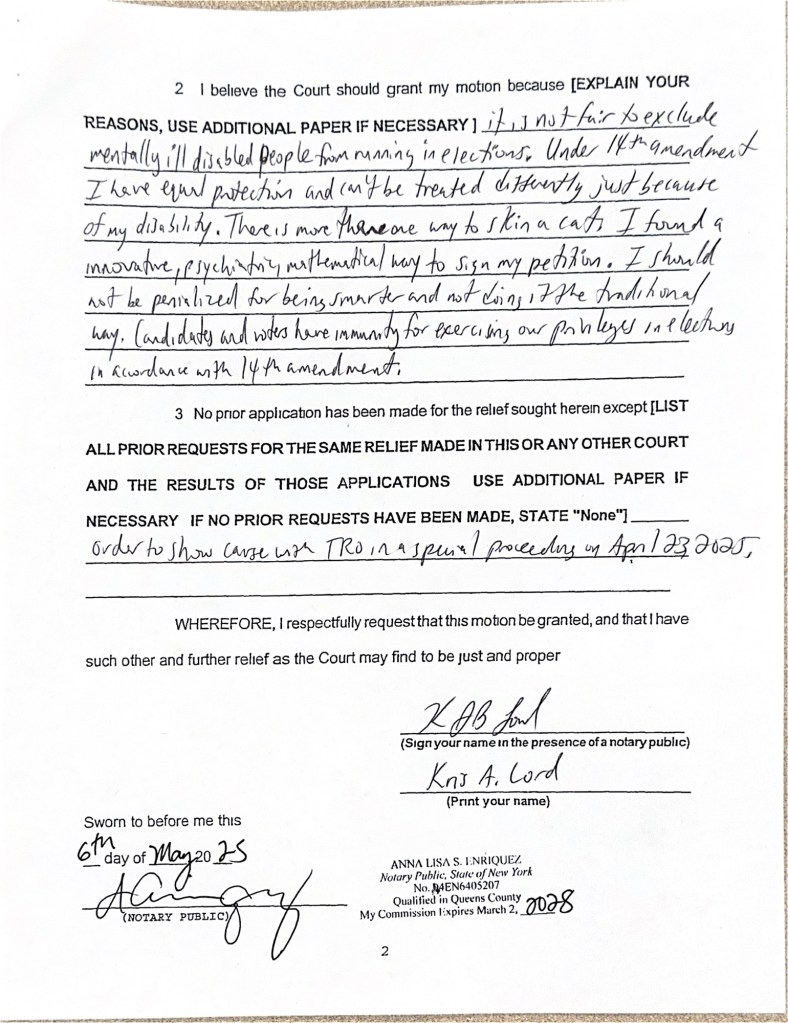 2 I believe the Court should grant my motion because [EXPLAIN YOUR
REASONS, USE ADDITIONAL PAPER IF NECESSARY] it is not fair to exclude
mentally ill disabled people from running in elections. Under 14th amendment
I have equal protection and can't be treated differently just because
of my disability. There is more there one way to skin a cat. I found a
innovative, psychiatric, mathematical way to sign my petition. I should
not be penalized for being smarter and not doing it the traditional
way. Candidates and voters have immunity for exercising our privileges in elections
in accordance with 14th amendment.
3 No prior application has been made for the relief sought herein except [LIST
ALL PRIOR REQUESTS FOR THE SAME RELIEF MADE IN THIS OR ANY OTHER COURT
AND THE RESULTS OF THOSE APPLICATIONS USE ADDITIONAL PAPER IF
NECESSARY IF NO PRIOR REQUESTS HAVE BEEN MADE, STATE "None"]
Order to show cause with TRO in a special proceeding on April 23, 2025.
WHEREFORE, I respectfully request that this motion be granted, and that I have
such other and further relief as the Court may find to be just and proper
(Sign your name in the presence of a notary public)
Kris A. Lord
(Print your name)
Sworn to before me this
6th day of May 2025
(NOTARY PUBLIC)
ANNA LISA S. ENRIQUEZ
Notary Public, State of New York
No. 04EN6405207
Qualified in Queens County
My Commission Expires March 2, 2028
2